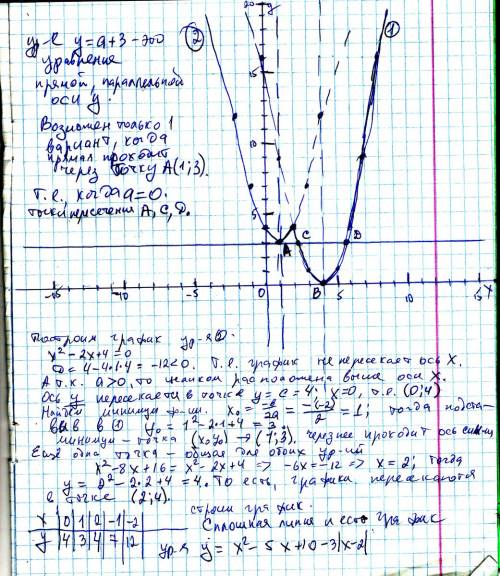 ур-е y = a+3 - это
уравнение
прямой, параллельной
оси y.
Возможен только 1
вариант, когда
прямая проходит
через точку A(1;3).
Т.е., когда a=0.
точки пересечения A, C, D.
② ①
y
20
15
10
5
A C B D
-15 -10 0 5 10 15 X
Построим график ур-я ①.
x²-2x+4=0
D = 4-4·1·4 = -12<0. Т.е. график не пересекает ось X.
А т.к. a>0, то целиком расположена выше оси X.
Ось y пересекается в точке y=c=4; x=0, т.е. (0;4)
Найдем минимум ф-ии. x₀ = -b/2a = -(-2)/2 = 1; тогда подста-
вив в ① y₀ = 1²-2·1+4 = 3.
минимум - точка (x₀;y₀) → (1;3). через нее проходит ось сим-ии
Ещё одна точка - общая для обоих ур-ий
x²-8x+16 = x²-2x+4 => -6x=-12 => x=2; тогда
y = 2²-2·2+4 = 4. То есть, графики пересекаются
в точке (2;4).
строим график.
x | 0 | 1 | 2 | -1 | -2
y | 4 | 3 | 4 | 7 | 12
Сплошная линия и есть график
ур-я y = x²-5x+10-3|x-2|